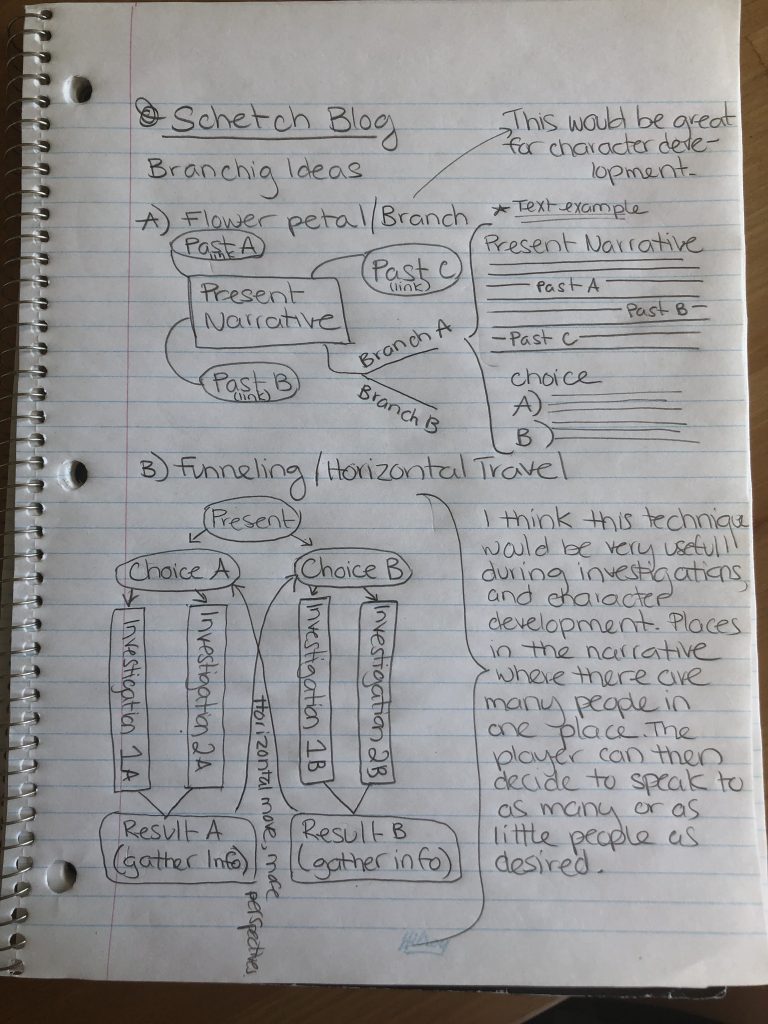 Schetch Blog
Branchig Ideas
This would be great
for character deve-
lopment.
A) Flower petal/Branch
Past A
link
Past C
(link)
Present
Narrative
Past B
(link)
Branch A
Branch B
* Text example
Present Narrative
Past A
Past B
Past C
choice
A)
B)
B) Funneling/Horizontal Travel
Present
Choice A
Choice B
Investigation 1A
Investigation 2A
Investigation 1B
Investigation 2B
Horizontal move, more
perspectives
Result A
(gather Info)
Result B
(gather info)
I think this technique
would be very usefull
during investigations,
and character
development. Places
in the narrative
where there are
many people in
one place. The
player can then
decide to speak to
as many or as
little people as
desired.